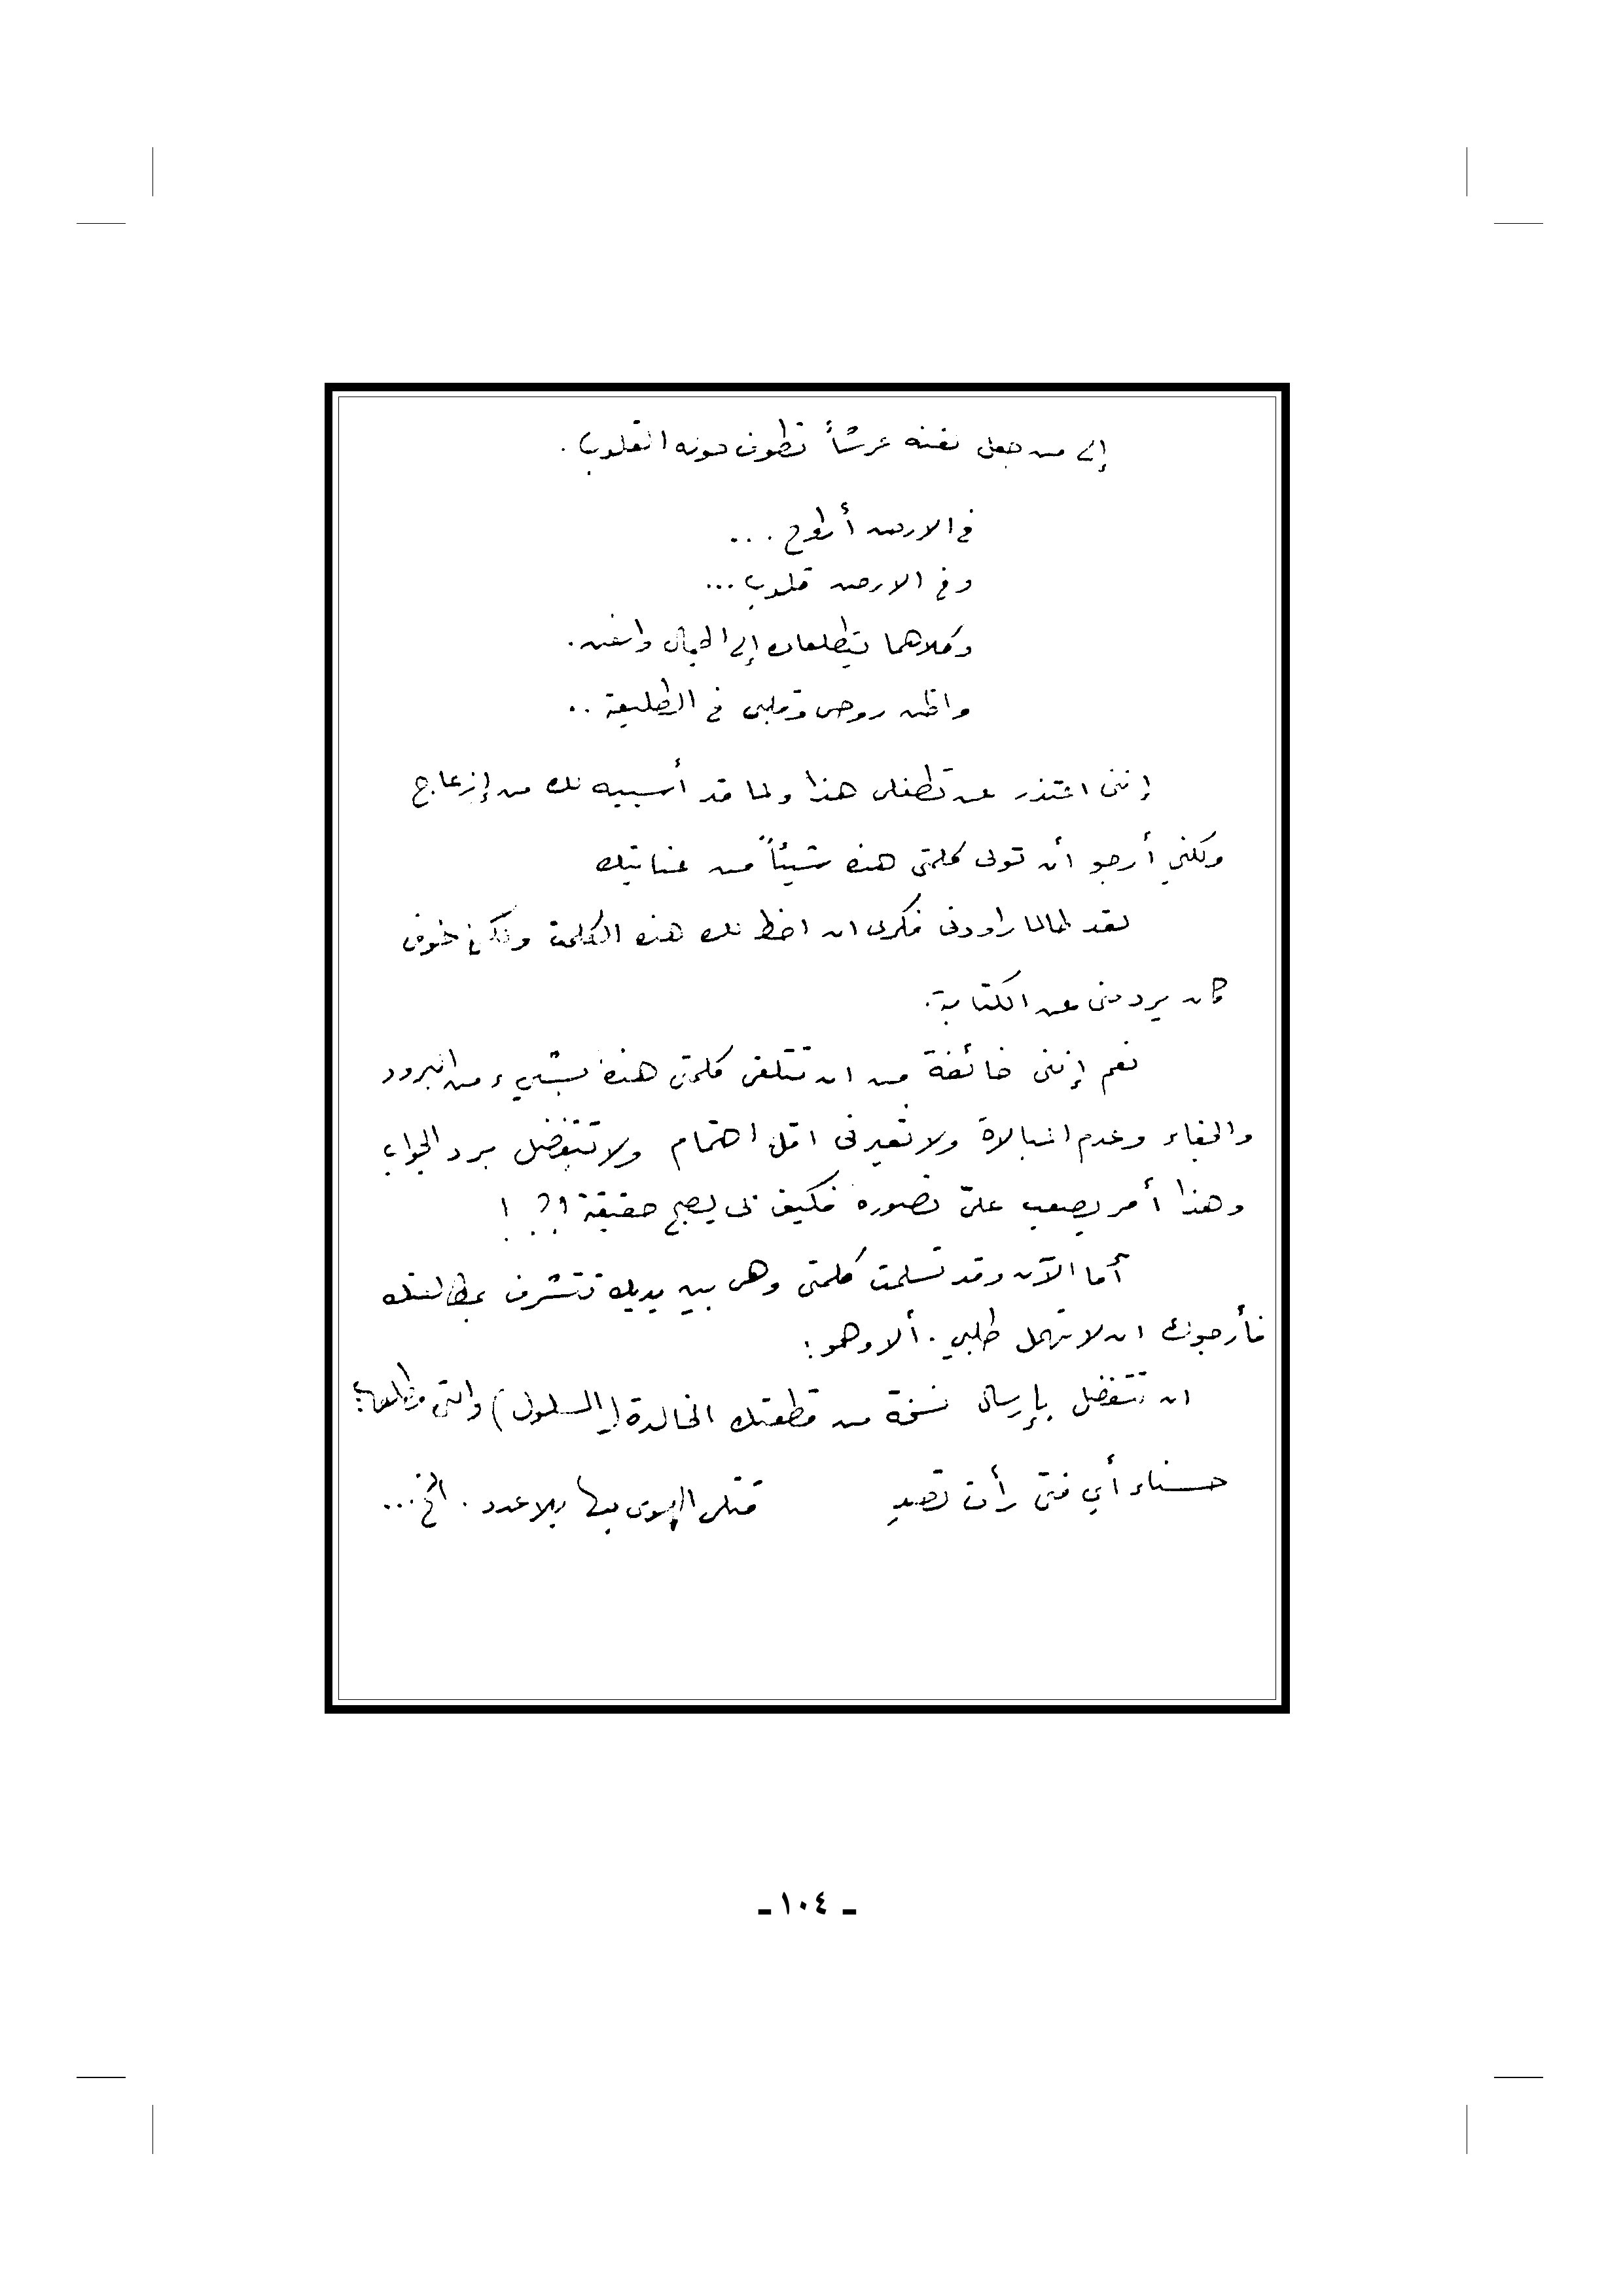 إلى من جعل نفسه عرشاً تطوف حوله القلوب.
في الارض أرواح ...
وفي الارض قلوب ...
وكلاهما يتطلعان إلى الجمال والفن.
واظن روحي وقلبي في الطليعة ..
إنني اعتذر عن تطفلي هذا ولما قد أسببه لك من إزعاج
ولكني أرجو أن تولي كلمتي هذه شيئاً من عنايتك
لقد طالما راودني فكري ان اخط لك هذه الكلمة ولكن خوفي
كان يردعني عن الكتابة.
نعم إنني خائفة من ان تتلقى كلمتي هذه بشيء من البرود
والجفاء وعدم المبالاة ولا تعيرني اقل اهتمام ولا تتفضل برد الجواب
وهذا أمر يصعب عليّ تصوره فكيف بي يصبح حقيقة ؟؟ !
أما الآن وقد تسلمت كلمتي وهي بين يديك تتشرف بمطالعتك
فأرجوك ان لا تهمل طلبي . ألا وهو :
ان تتفضل بإرسال نسخة من قطعتك الخالدة (السلول) والتي مطلعها :
حسناء أي فتى رأت تصدِ قتلى الهوى فيها بلا عدد . الخ ...
ـ ١٠٤ ـ